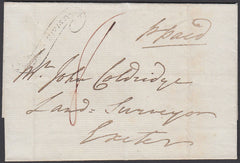 p paid
Mr. John Coldridge
Land Surveyor
Exeter